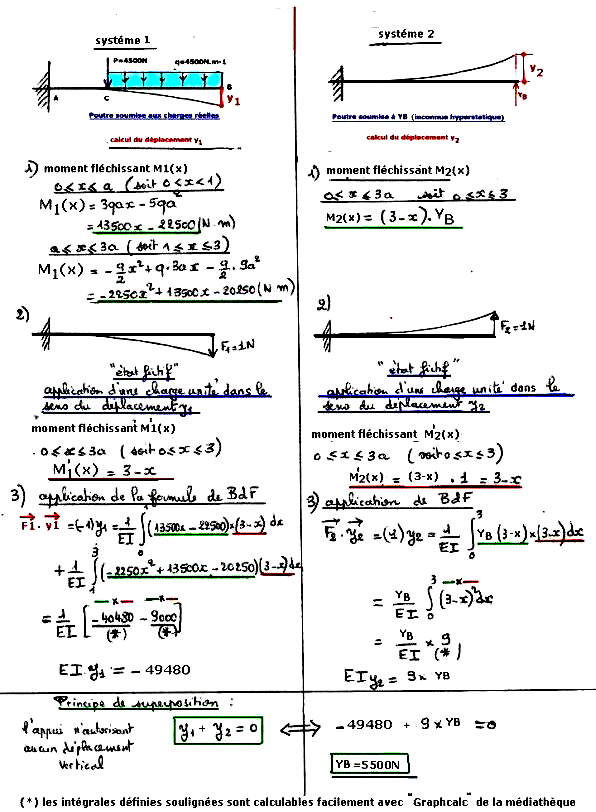 systéme 1
P=4500N
q=4500N.m-1
A
C
B
y1
Poutre soumise aux charges réelles
calcul du déplacement y1
1) moment fléchissant M1(x)
0≤x≤a (soit 0≤x≤1)
M1(x) = 3qax - 5qa²
= 13500x - 22500 (N.m)
a≤x≤3a (soit 1≤x≤3)
M1(x) = -q/2 x² + q.3ax - q/2 . 9a²
= -2250x² + 13500x - 20250 (N.m)
2)
F1=1N
"état fictif"
application d'une charge unité dans le
sens du déplacement y1
moment fléchissant M'1(x)
0≤x≤3a (soit 0≤x≤3)
M'1(x) = 3-x
3) application de la formule de BdF
F1 . y1 = (-1) y1 = 1/EI ∫0^1 (13500x - 22500)x(3-x) dx
+ 1/EI ∫1^3 (-2250x² + 13500x - 20250)(3-x) dx
= 1/EI [-40480 - 9000]
(*) (*)
EI.y1 = - 49480
systéme 2
y2
YB
Poutre soumise à YB (inconnue hyperstatique)
calcul du déplacement y2
1) moment fléchissant M2(x)
0≤x≤3a soit 0≤x≤3
M2(x) = (3-x).YB
2)
F2=1N
"état fictif"
application d'une charge unité dans le
sens du déplacement y2
moment fléchissant M'2(x)
0≤x≤3a (soit 0≤x≤3)
M'2(x) = (3-x) . 1 = 3-x
3) application de BdF
F2 . y2 = (1) y2 = 1/EI ∫0^3 YB (3-x)x(3-x)dx
= YB/EI ∫0^3 (3-x)² dx
= YB/EI x 9
(*)
EI y2 = 9x YB
Principe de superposition :
l'appui n'autorisant
aucun déplacement
vertical
y1 + y2 = 0 ⟺ - 49480 + 9 x YB = 0
YB = 5500N
(*) les intégrales définies soulignées sont calculables facilement avec "Graphcalc" de la médiathèque